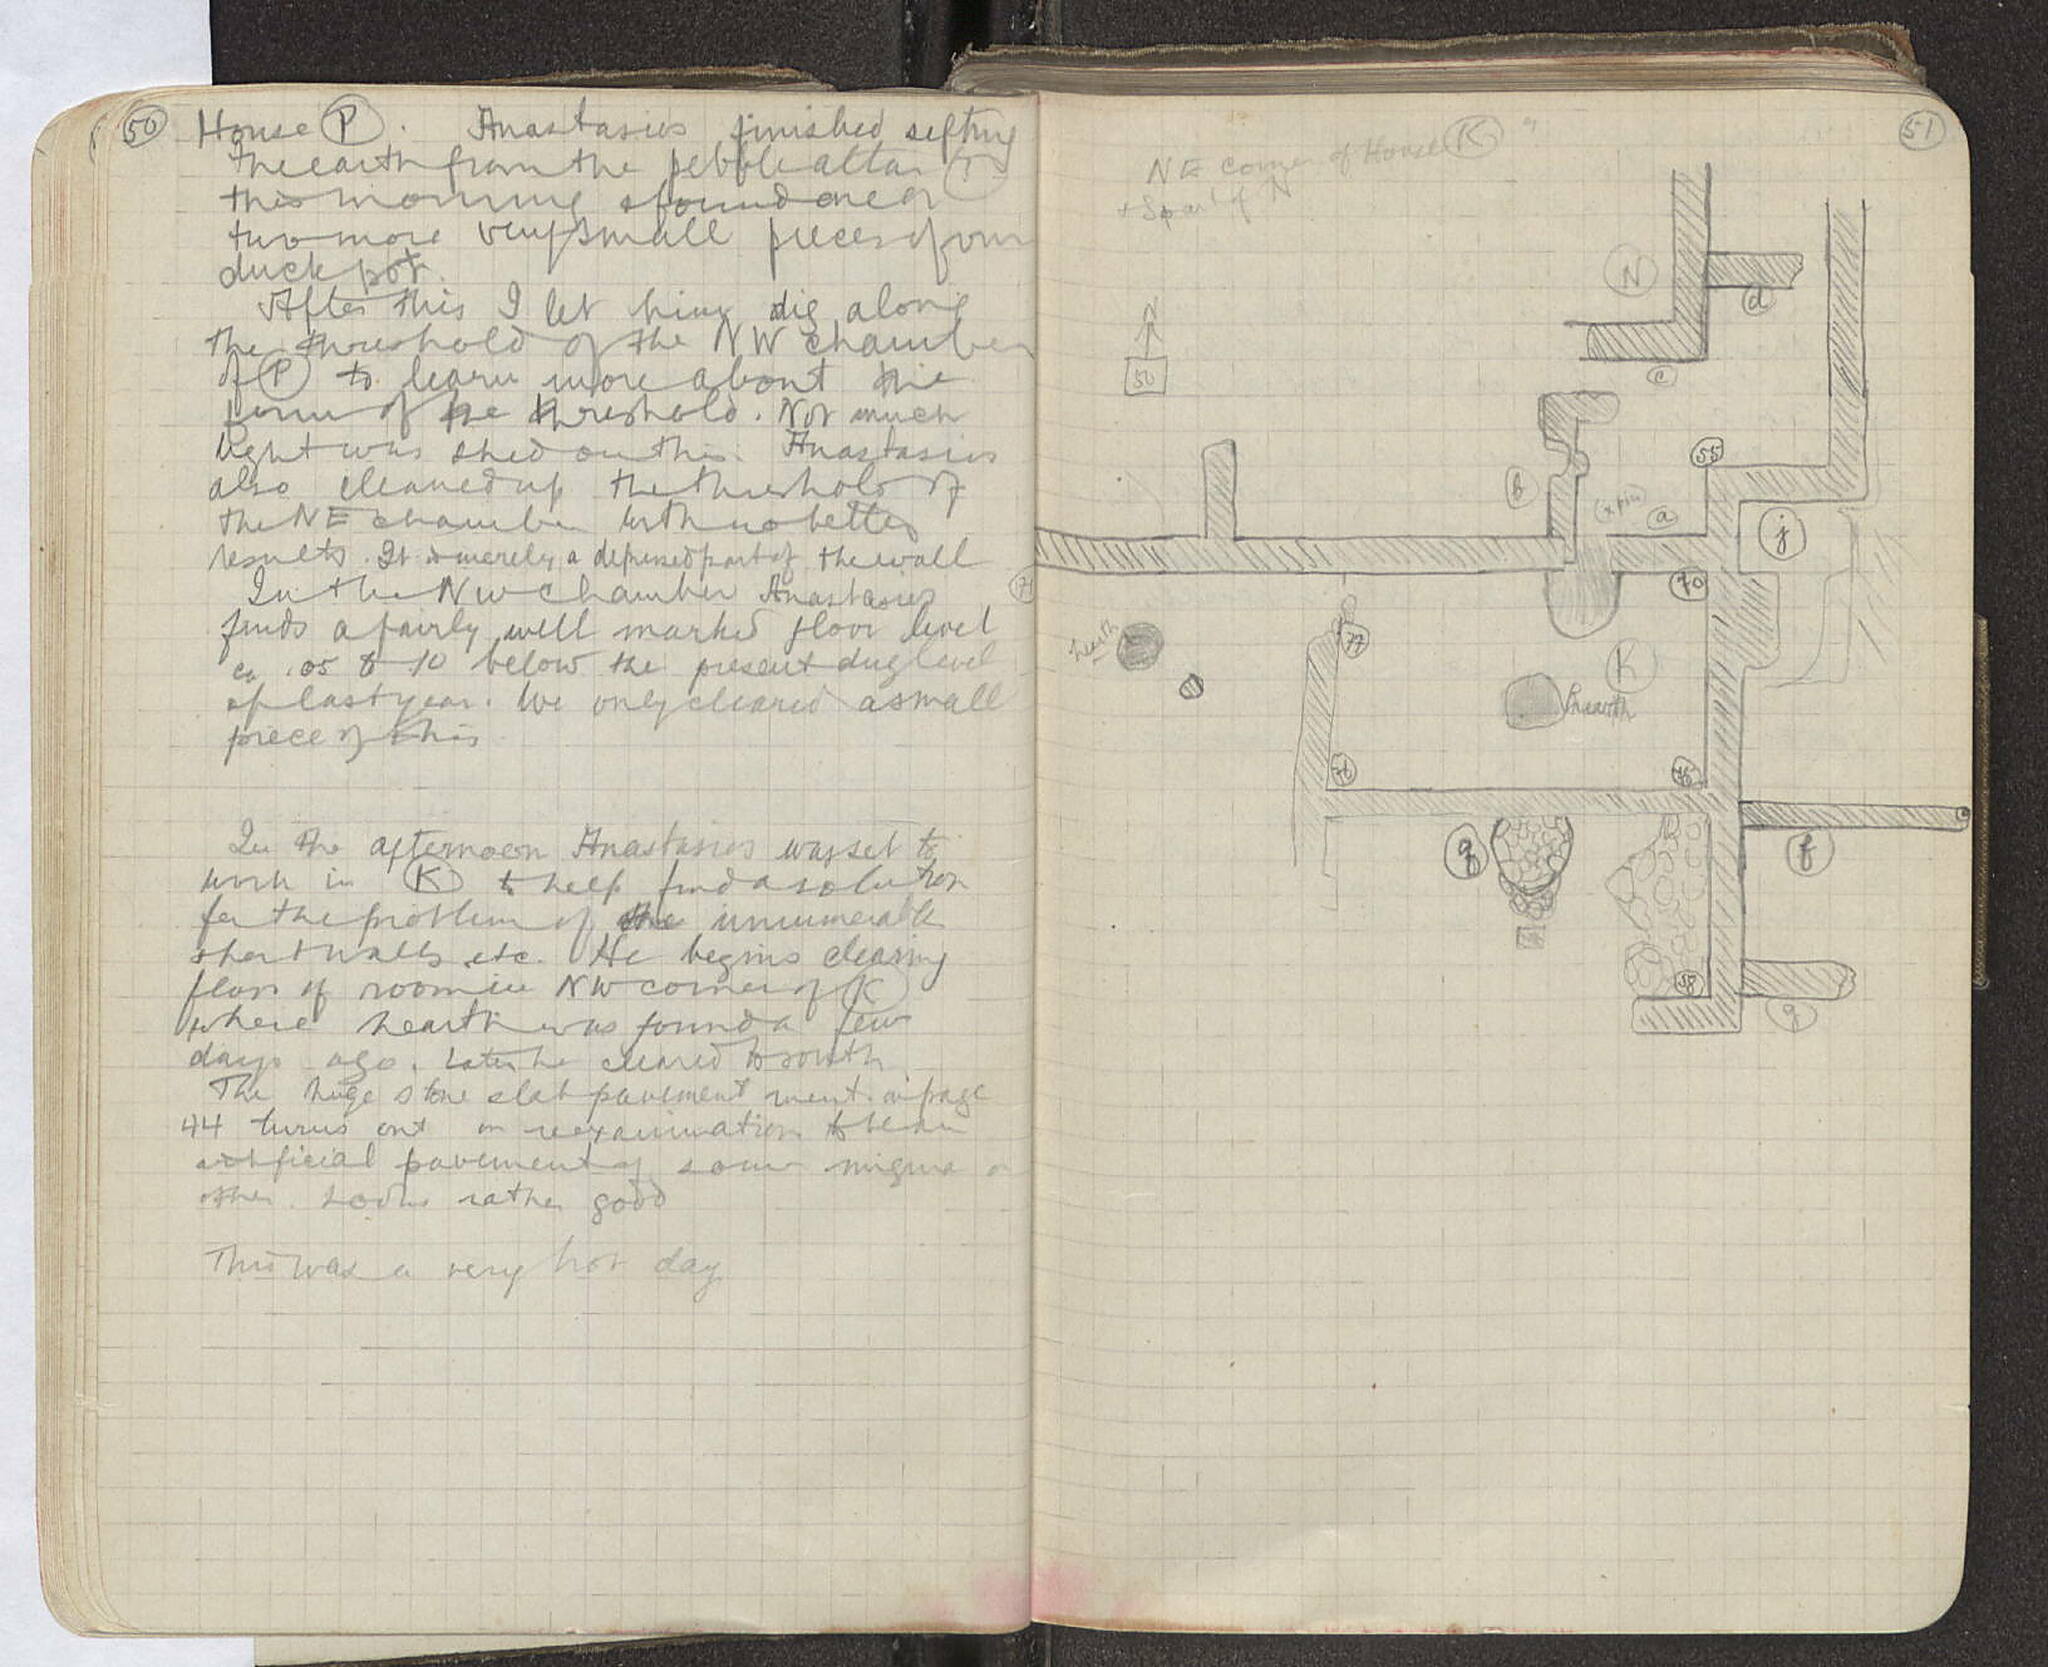 50 House P. Anastasios finished sifting
the earth from the pebble altar
this morning & found one or
two more very small pieces of our
duck pot.
After this I let him dig along
the threshold of the NW chamber
of P to learn more about the
form of the threshold. Not much
light was shed on this. Anastasios
also cleaned up the threshold of
the NE chamber with no better
results. It is merely a depressed part of the wall
In the NW chamber Anastasios
finds a fairly well marked floor level
ca .05 to 10 below the present dug level
of last year. We only cleared a small
piece of this.
In the afternoon Anastasios was set to
work in K to help find a solution
for the problem of the innumerable
short walls etc. He begins clearing
floor of room in NW corner of K
where hearth was found a few
days ago. Later he cleared to south
The huge stone slab pavement ment. on page
44 turns out on reexamination to be an
artificial pavement of some or
other. Looks rather good
This was a very hot day
51
NE corner of House K
+ S part of N
N
N
d
c
50
55
b
a
j
70
77
hearth
K
hearth
76
g
f
58
g